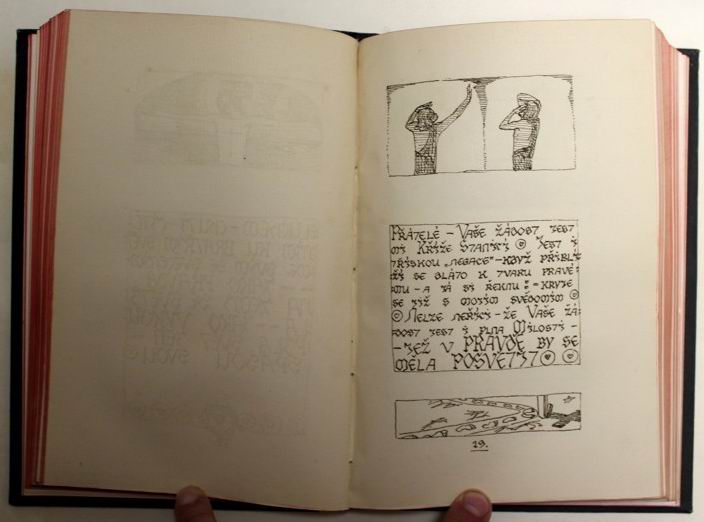 PŘÁTELÉ – VAŠE ŽÁDOST JEST
MI KŘÍŽE STANICÍ JEST I
TŘÍSKOU „NEGACE" – KDYŽ PŘIBLÍ
ŽÍ SE BLÁTO K TVARU PRAVÉ
MU – A JÁ SI ŘEKNU = KRYJE
SE JIŽ S MOJÍM SVĚDOMÍM
NELZE NEŘÍCI – ŽE VAŠE ŽÁ
DOST JEST I PLNA MILOSTI –
– JEŽ V PRAVDĚ BY SE
MĚLA POSVĚTIT
19.